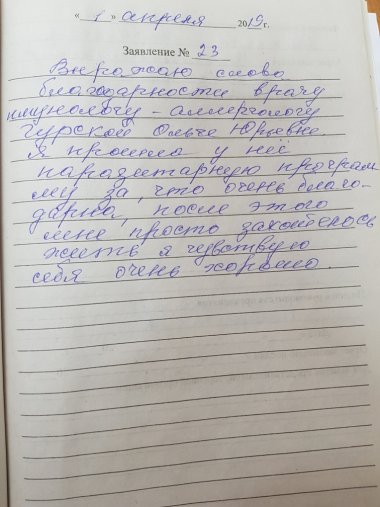 « 1 » апреля 2019 г.
Заявление № 23
Выражаю слова
благодарности врачу
имунологу - аллергологу
Гурской Ольге Юрьевне.
Я прошла у неё
паразитарную програм
му за, что очень благо-
дарна, после этого
мне просто захотелось
жить я чувствую
себя очень хорошо.